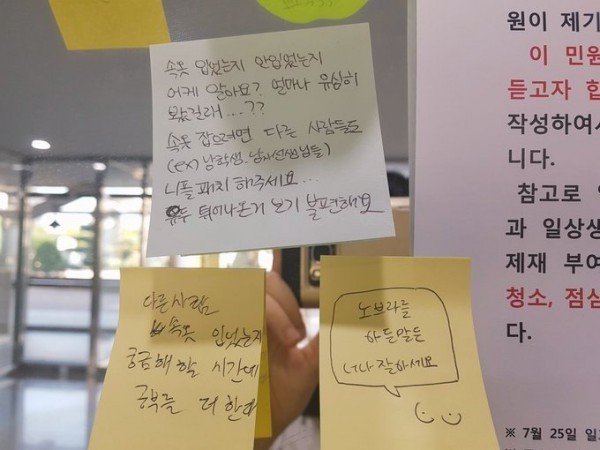 속옷 입었는지 안입었는지
어케 알아요? 얼마나 유심히
봤길래...??
속옷 잡으려면 다른 사람들도
(ex) 남학생, 남자선생님들)
니플패치 해주세요..
유두 튀어나온거 보기 불편해요
다른사람
속옷 입었는지
궁금해 할 시간에
공부를 더 한다
노브라를
하든말든
너나 잘하세요
원이 제기
이 민원
듣고자 합
작성하여
니다.
참고로
과 일상생
제재 부여
청소, 점심
다.
※ 7월 25일 일